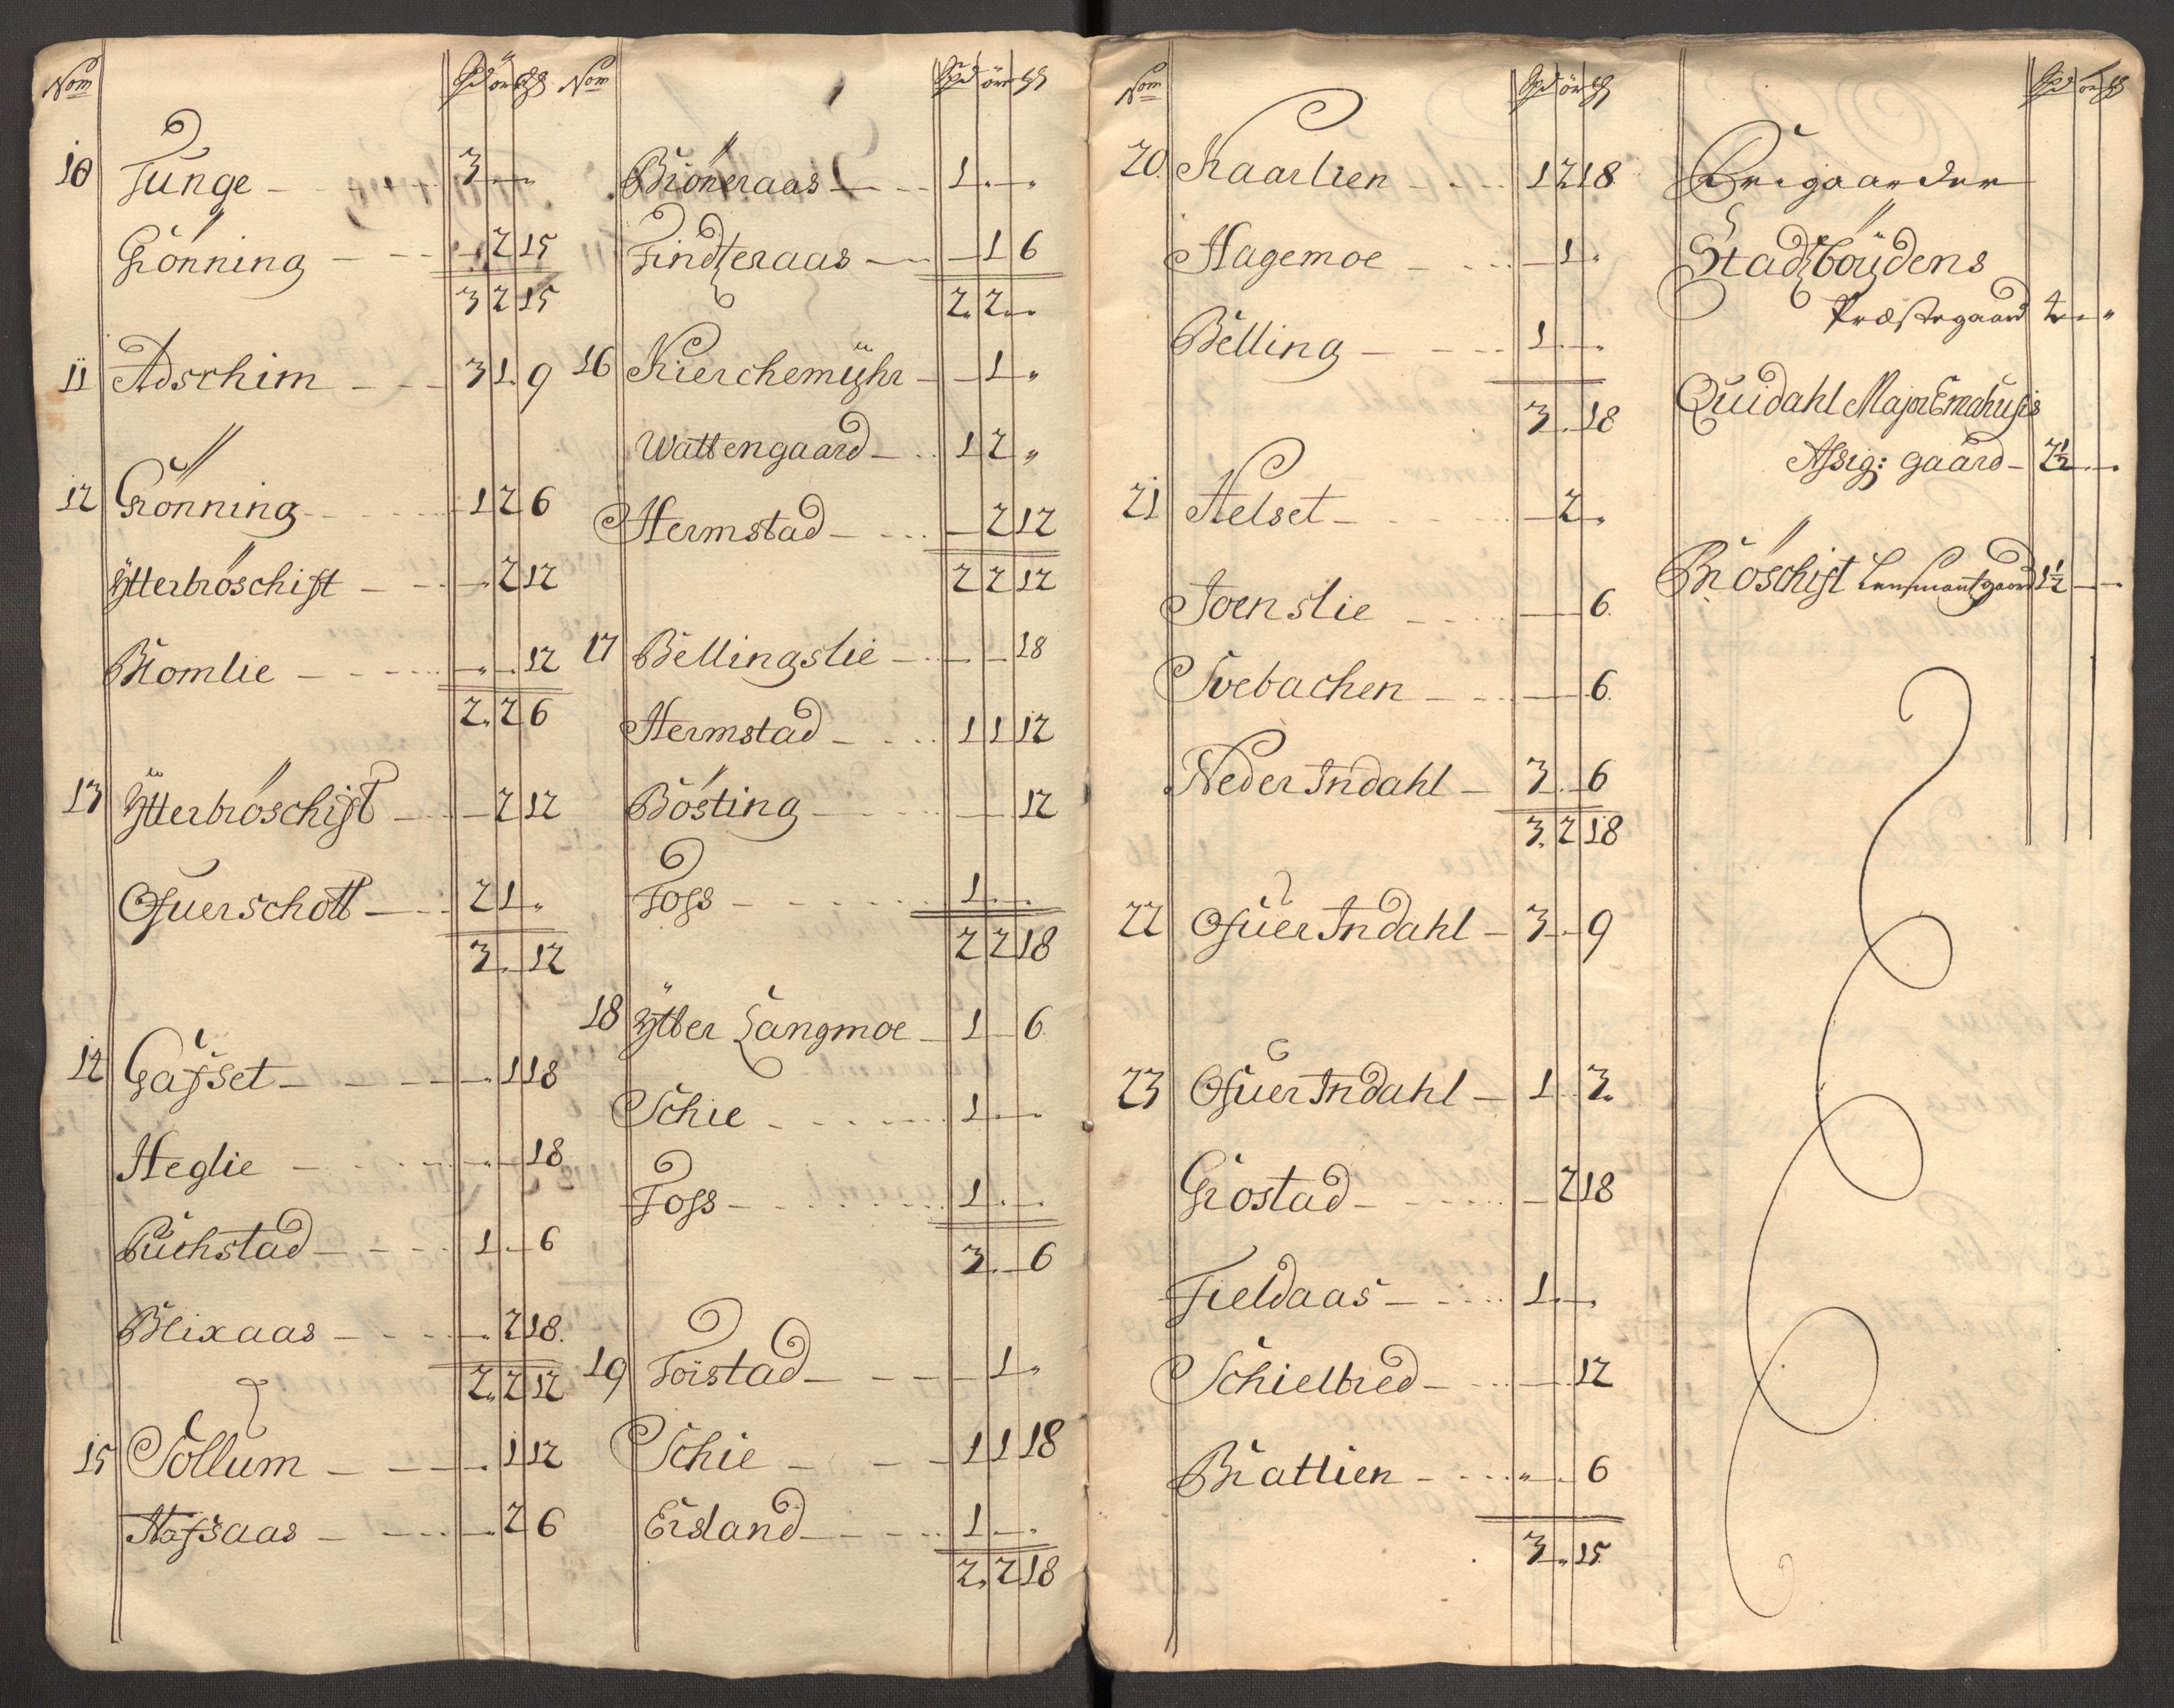 Nom Spd ör
10 Tunge - 3 - "
Grönning - - 2 15
3 2 15
11 Adschim - 3 1 9
12 Grönning - 1 2 6
Ytterbröschift - - 2 12
Bromlie - " - 12
2. 2 6
13 Ytterbröschift - - 2 12
Ofuerschott - 2 1 "
3. 12
14 Gafset - - 1 18
Heglie - " - 18
Puchstad - 1 - 6
Blixaas - - 2 18.
2. 2 12
15 Sollum - - 1 12
Hafsaas - - 2 6
Nom Spd ör
Bröneraas - 1 - "
Findteraas - - 1 6
2. 2 -
16 Kierchemyhr - - 1 "
Wattengaard - 1 2 "
Hermstad - - 2 12
2 2 12
17 Bellingslie - - - 18
Hermstad - 1 1 12
Bösting - - - 12
Foss - 1 - -
2 2 18
18 Ytter Langmoe - 1 - 6
Schie - 1 - -
Foss - 1 - -
3. - 6
19 Forstad - - 1 "
Schie - 1 1 18
Ersland - 1 - -
2. 2 18
Nom Spd ör
20. Kaarlien - 1 2 18
Hagemoe - - 1 "
Belling - 1 - "
3. - 18
21 Helset - - 2 "
Joenslie - - - 6.
Svebachen - - - 6
Neder Indahl - 3 - 6
3. 2 18
22 Ofuer Indahl - 3 - 9
23 Ofuer Indahl - 1 3.
Grostad - - 2 18
Fieldaas - 1 - "
Schielbred - - - 12
Brattlien - " - 6
3. 15
Spd
Frigaarder
Stadzböydens
Præstegaard 4 - "
Quidahl Major Emahusis
Assig: gaard - 2½ - -
Bröschift Lensmantzgaard 1½ - -